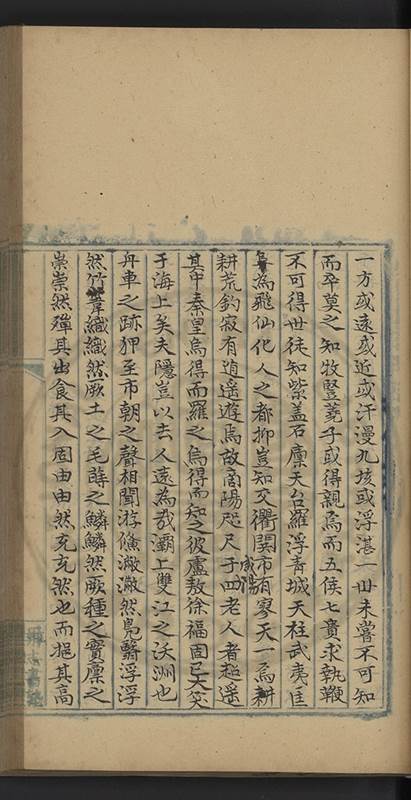 一方或遠或近或汗漫九垓或浮湛一世未嘗不可知
而卒莫之知牧豎蕘子或得親焉而五侯七貴求執鞭
不可得世徒知紫蓋石廩天台羅浮青城天柱武夷匡
為飛仙化人之都抑豈知交衢闤市有寥天一焉耕
耕荒釣寂有逍遥遊焉故商陽咫尺于四老人者極遥
其中秦皇烏得而羅之烏得而知之彼盧敖徐福固已大笑
于海上矣夫隱豈以去人遠為哉灞上雙江之沃洲也
舟車之跡狎至市朝之聲相聞游鯈潎潎然鳧鷖浮浮
然竹葦纖纖然厥土之毛蒔之鱗鱗然厥種之實廩之
崇崇然殫其出食其入固由由然充充然也而挹其高